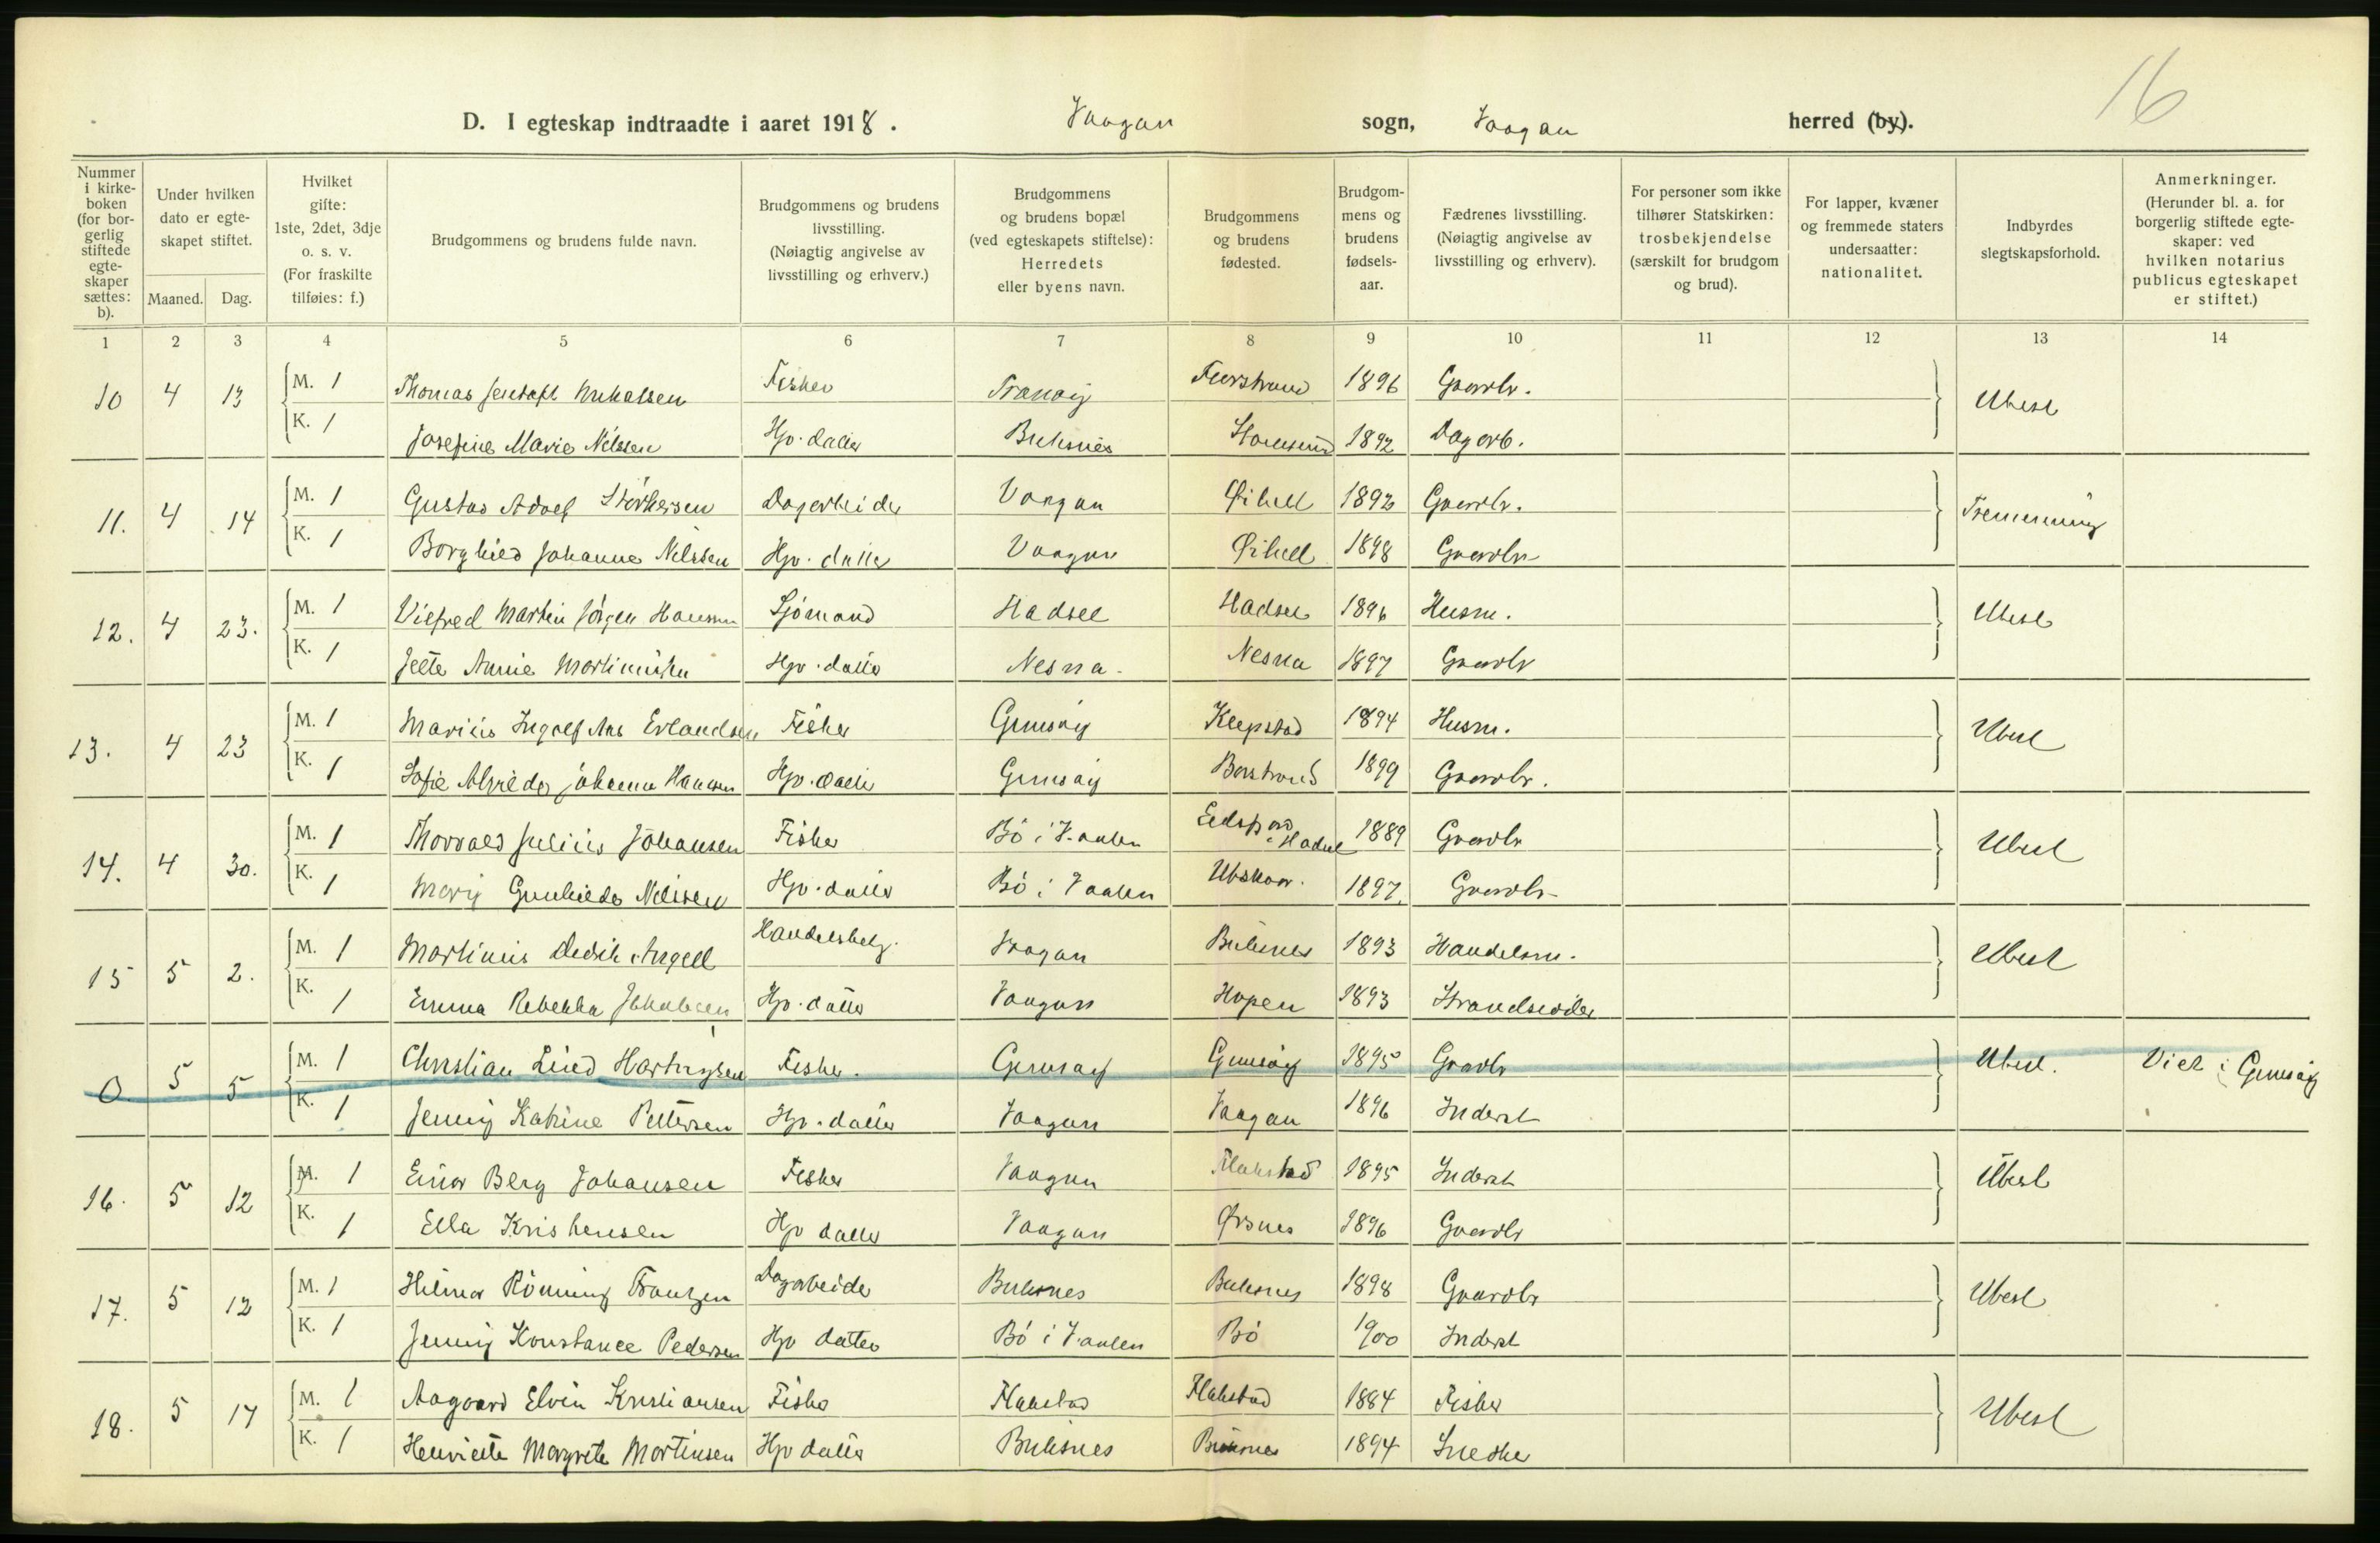 16
D. I egteskap indtraadte i aaret 1918. Vaagan sogn, Vaagan herred (by).
Nummer i kirke-boken (for bor-gerlig stiftede egte-skaper sættes: b).
Under hvilken dato er egte-skapet stiftet.
Maaned. Dag.
Hvilket gifte: 1ste, 2det, 3dje o. s. v. (For fraskilte tilføies: f.)
Brudgommens og brudens fulde navn.
Brudgommens og brudens livsstilling. (Nøiagtig angivelse av livsstilling og erhverv.)
Brudgommens og brudens bopæl (ved egteskapets stiftelse): Herredets eller byens navn.
Brudgommens og brudens fødested.
Brudgom-mens og brudens fødsels-aar.
Fædrenes livsstilling. (Nøiagtig angivelse av livsstilling og erhverv).
For personer som ikke tilhører Statskirken: trosbekjendelse (særskilt for brudgom og brud).
For lapper, kvæner og fremmede staters undersaatter: nationalitet.
Indbyrdes slegtskapsforhold.
Anmerkninger. (Herunder bl. a. for borgerlig stiftede egte-skaper: ved hvilken notarius publicus egteskapet er stiftet.)
1 2 3 4 5 6 7 8 9 10 11 12 13 14
10 4 13 M. 1 Thomas Jentoft Mikalsen Fisker Tranøy 1896 Gaardbr. Ubesl
K. 1 Josefine Marie Nilssen Hjv. datter Buksnes 1892 Dagarb.
11. 4 14 M. 1 Gustav Adolf Størkersen Dagarbeider Vaagan Øihell 1892 Gaardbr. Tremenning
K. 1 Borghild Johanne Nilssen Hjv. datter Vaagan Øihell 1898 Gaardbr
12. 4 23. M. 1 Vilfred Martin Jørgen Hansen Sjømand Hadsel Hadsel 1896 Husm. Ubesl
K. 1 Jette Annie Martinussen Hjv. datter Nesna. Nesna 1897 Gaardbr
13. 4 23 M. 1 Marius Ingolf Aas Erlandsen Fisker Gimsøy Klepstad 1894 Husm. Ubesl
K. 1 Sofie Alfrida Johanna Hansen Hjv. datter Gimsøy 1899 Gaardbr.
14. 4 30. M. 1 Thorvald Julius Johansen Fisker Bø i V.aalen Eidsfjord i Hadsel 1889 Gaardbr Ubesl
K. 1 Mary Gunhilda Nilssen Hjv. datter Bø i Vaalen 1897. Gaardbr
15 5 2. M. 1 Martinus Dedik Angell Handelsbetj. Vaagan Buksnes 1893 Handelsm. Ubesl
K. 1 Emma Rebekka Jakobsen Hjv. datter Vaagan Hopen 1893 Strandsidder
0 5 5 M. 1 Christian Lind Hartvigsen Fisker. Gimsøy Gimsøy 1895 Gaardbr Ubesl. Viet i Gimsøy
K. 1 Jenny Katrine Pettersen Hjv. datter Vaagan Vaagan 1896 Inderst
16. 5 12 M. 1 Einar Berg Johansen Fisker Vaagan Flakstad 1895 Inderst Ubesl
K. 1 Ella Kristensen Hjv datter Vaagan Ørsnes 1896 Gaardbr
17. 5 12 M. 1 Hilmar Rønning Frantzen Dagarbeider Buksnes Buksnes 1898 Gaardbr Ubesl
K. 1 Jenny Konstance Pedersen Hjv datter Bø i V.aalen Bø 1900 Inderst
18. 5 17 M. 1 Aagaard Elvin Kristiansen Fisker Flakstad Flakstad 1884 Fisker Ubesl
K. 1 Henriette Margrete Martinsen Hjv datter Buksnes Buksnes 1894 Snedker